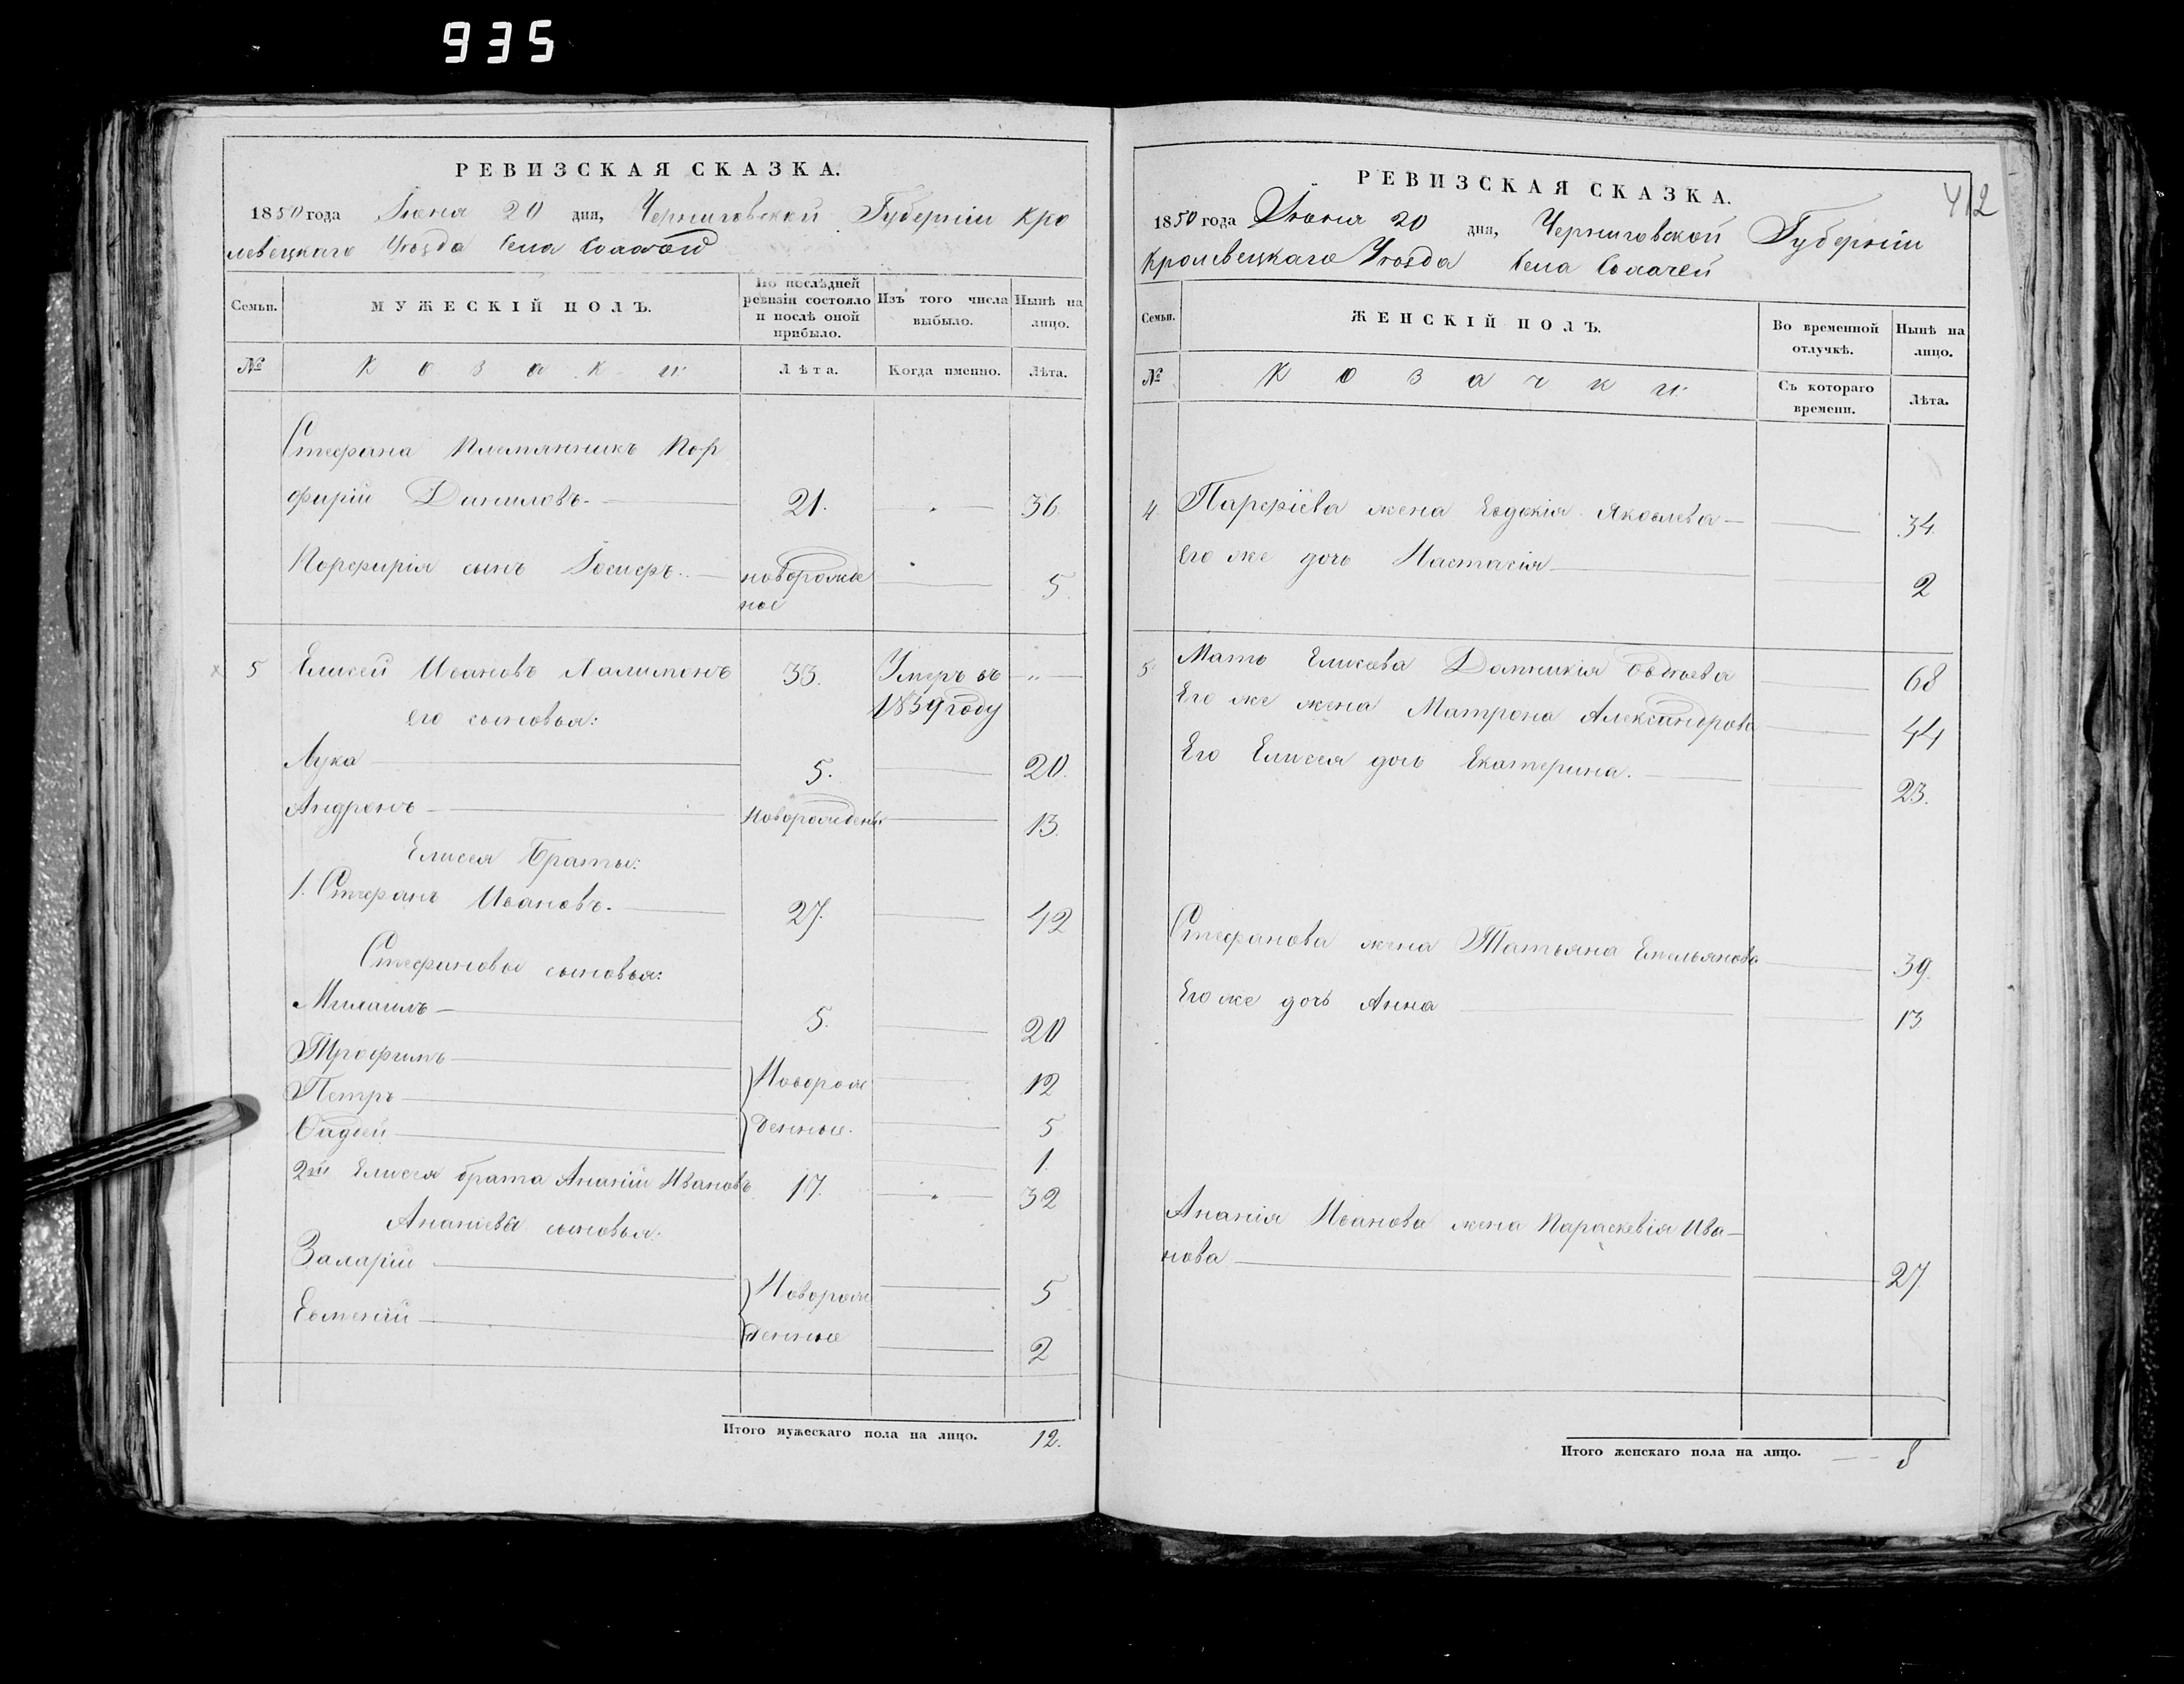 935
РЕВИЗСКАЯ СКАЗКА.
1850 года Іюня 20 дня, Черниговской Губерніи Кро
левецкаго Уѣзда Села
Семьи.
МУЖЕСКІЙ ПОЛЪ.
По послѣдней ревизіи состояло и послѣ оной прибыло.
Изъ того числа выбыло.
Нынѣ на лицо.
№
Козаки
Лѣта.
Когда именно.
Лѣта.
Стефана Племянникъ Пор
фирій Даниловъ. 21. 36
Порфирія сынъ Іосифъ. новорожде 5
ное
5 Елисей Ивановъ Халимонъ 33. Умеръ въ
1839 году
его сыновья:
Лука 5. 20.
Андронъ Новорожденъ 13.
Елисея Браты:
1. Стефанъ Ивановъ. 27. 42
Стефановы сыновья:
Михаилъ 5. 20
ТрофимъНоворож 12
Петръ денные. 5
Фадей 1.
2й Елисея брата Ананій Ивановъ 17. 32
Ананіевы сыновья:
Захарій Новорож 5
Евменій денные 2
Итого мужескаго пола на лицо. 12.
412
РЕВИЗСКАЯ СКАЗКА.
1850 года Іюня 20 дня, Черниговской Губерніи
Кролевецкаго Уѣзда Села
Семьи.
ЖЕНСКІЙ ПОЛЪ.
Во временной отлучкѣ.
Нынѣ на лицо.
№
Козачки
Съ котораго времени.
Лѣта.
4 Парфіева жена Евдокія Яковлева 34.
Его же дочь Настасія 2
5. Мать Елисева Домникія Овдѣева 68
Его же жена Матрона Александрова 44
Его Елисея дочь Екатерина. 23.
Стефанова жена Татьяна Емельянова 39.
Его же дочь Анна 13.
Ананія Иванова жена Параскевія Ива-
нова 27
Итого женскаго пола на лицо. 8